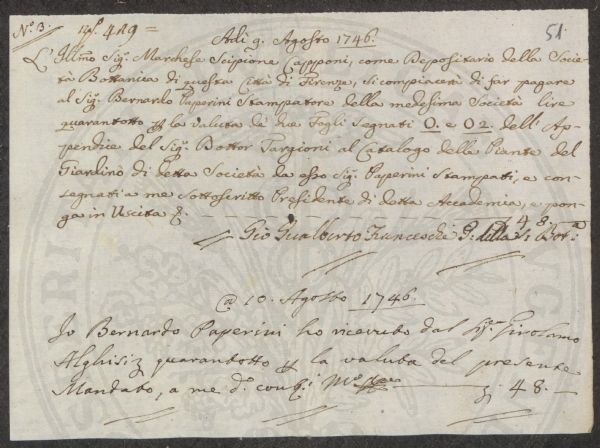 N.º 3.
51
Adi 9. Agosto 1746.
L'Illmo Sig. Marchese Scipione Capponi, come Depositario della Socie-
tà Bottanica di questa Città di Firenze, si compiacerà di far pagare
al Sig. Bernardo Paperini Stampatore della medesima Società lire
quarantotto p la valuta de due Fogli Segnati O. e O2. dell'Ap-
pendice del Sig. Dottor Targioni al Catalogo della Piante del
Giardino di detta Società da esso Sig. Paperini Stampati, e con-
segnati a me sottoscritto Presidente di detta Accademia, e pon-
ga in Uscita
48
Gio Gualberto Franceschi P. della S. Bot.a
@ 10. Agosto 1746.
Io Bernardo Paperini ho ricevuto dal Sig.re Girolamo
Alghisi quarantotto p la valuta del presente
Mandato, a me d.o
48.